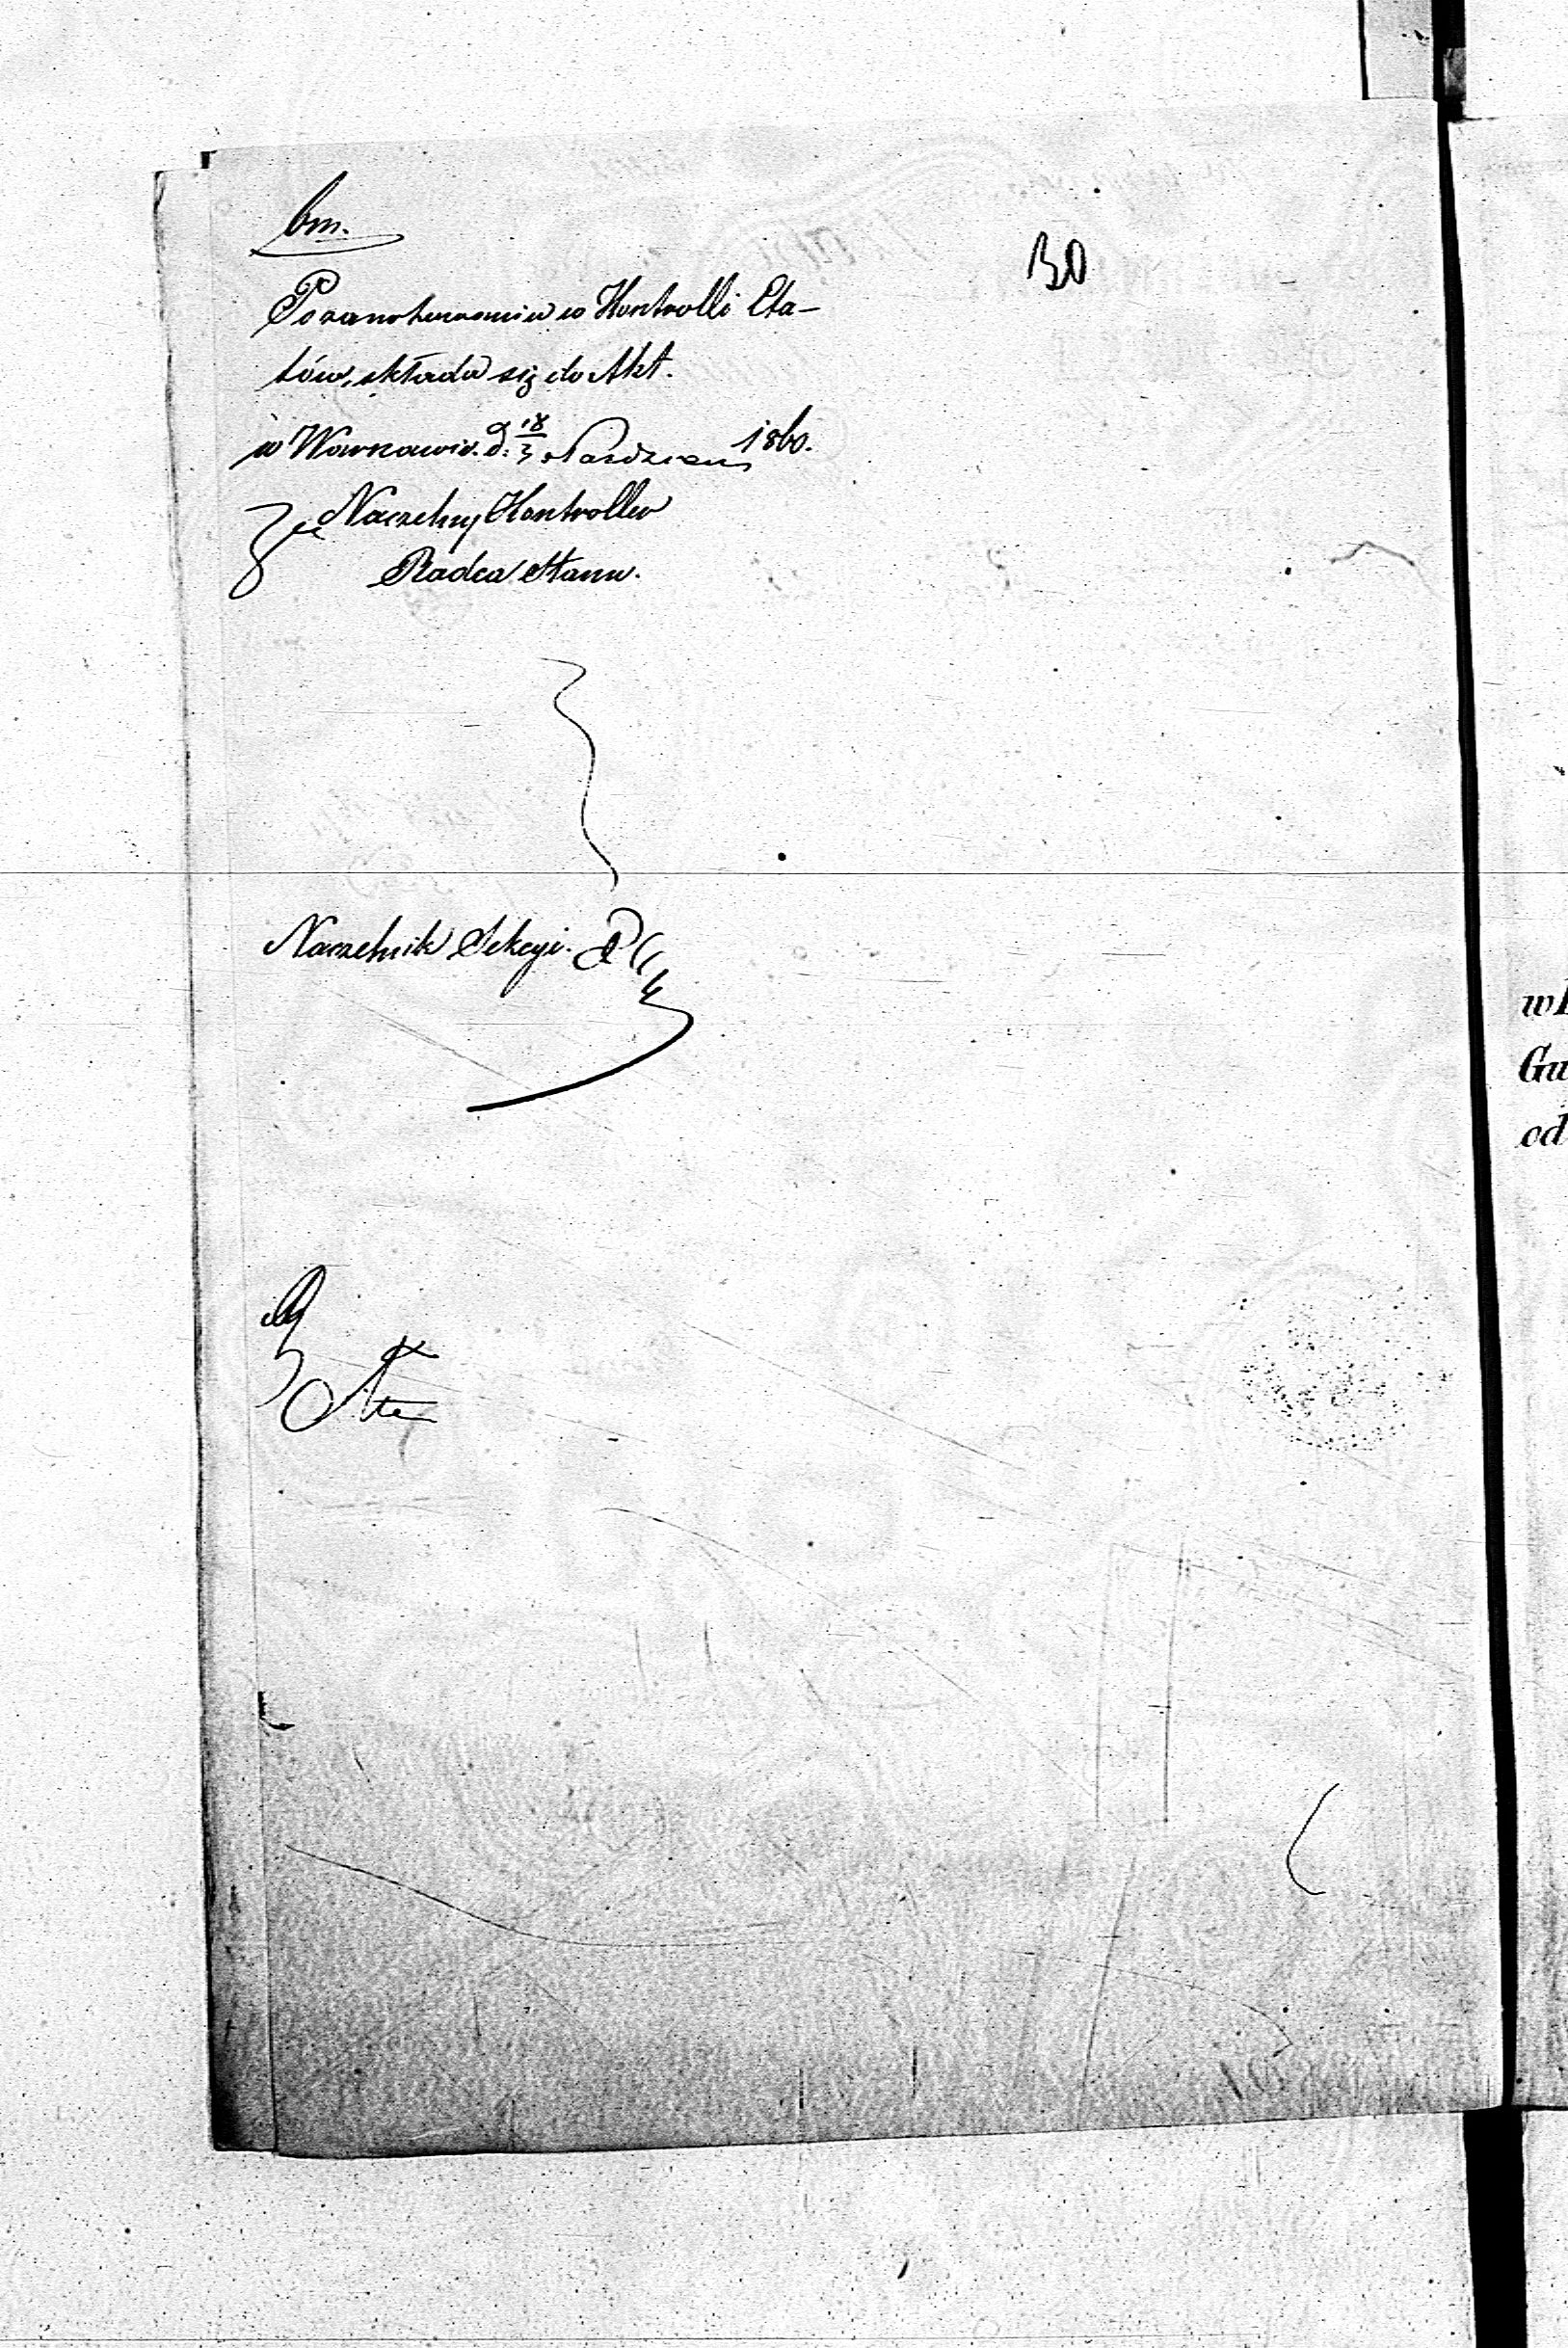 bm.
30
Po zanotowaniu w Kontrolli Eta-
tów, składa się do Akt.
w Warszawie d. 18/3 Paździer 1860.
Za Naczelny Kontroller
Radca Stanu.
Naczelnik Sekcyi.
wł
Gu
od